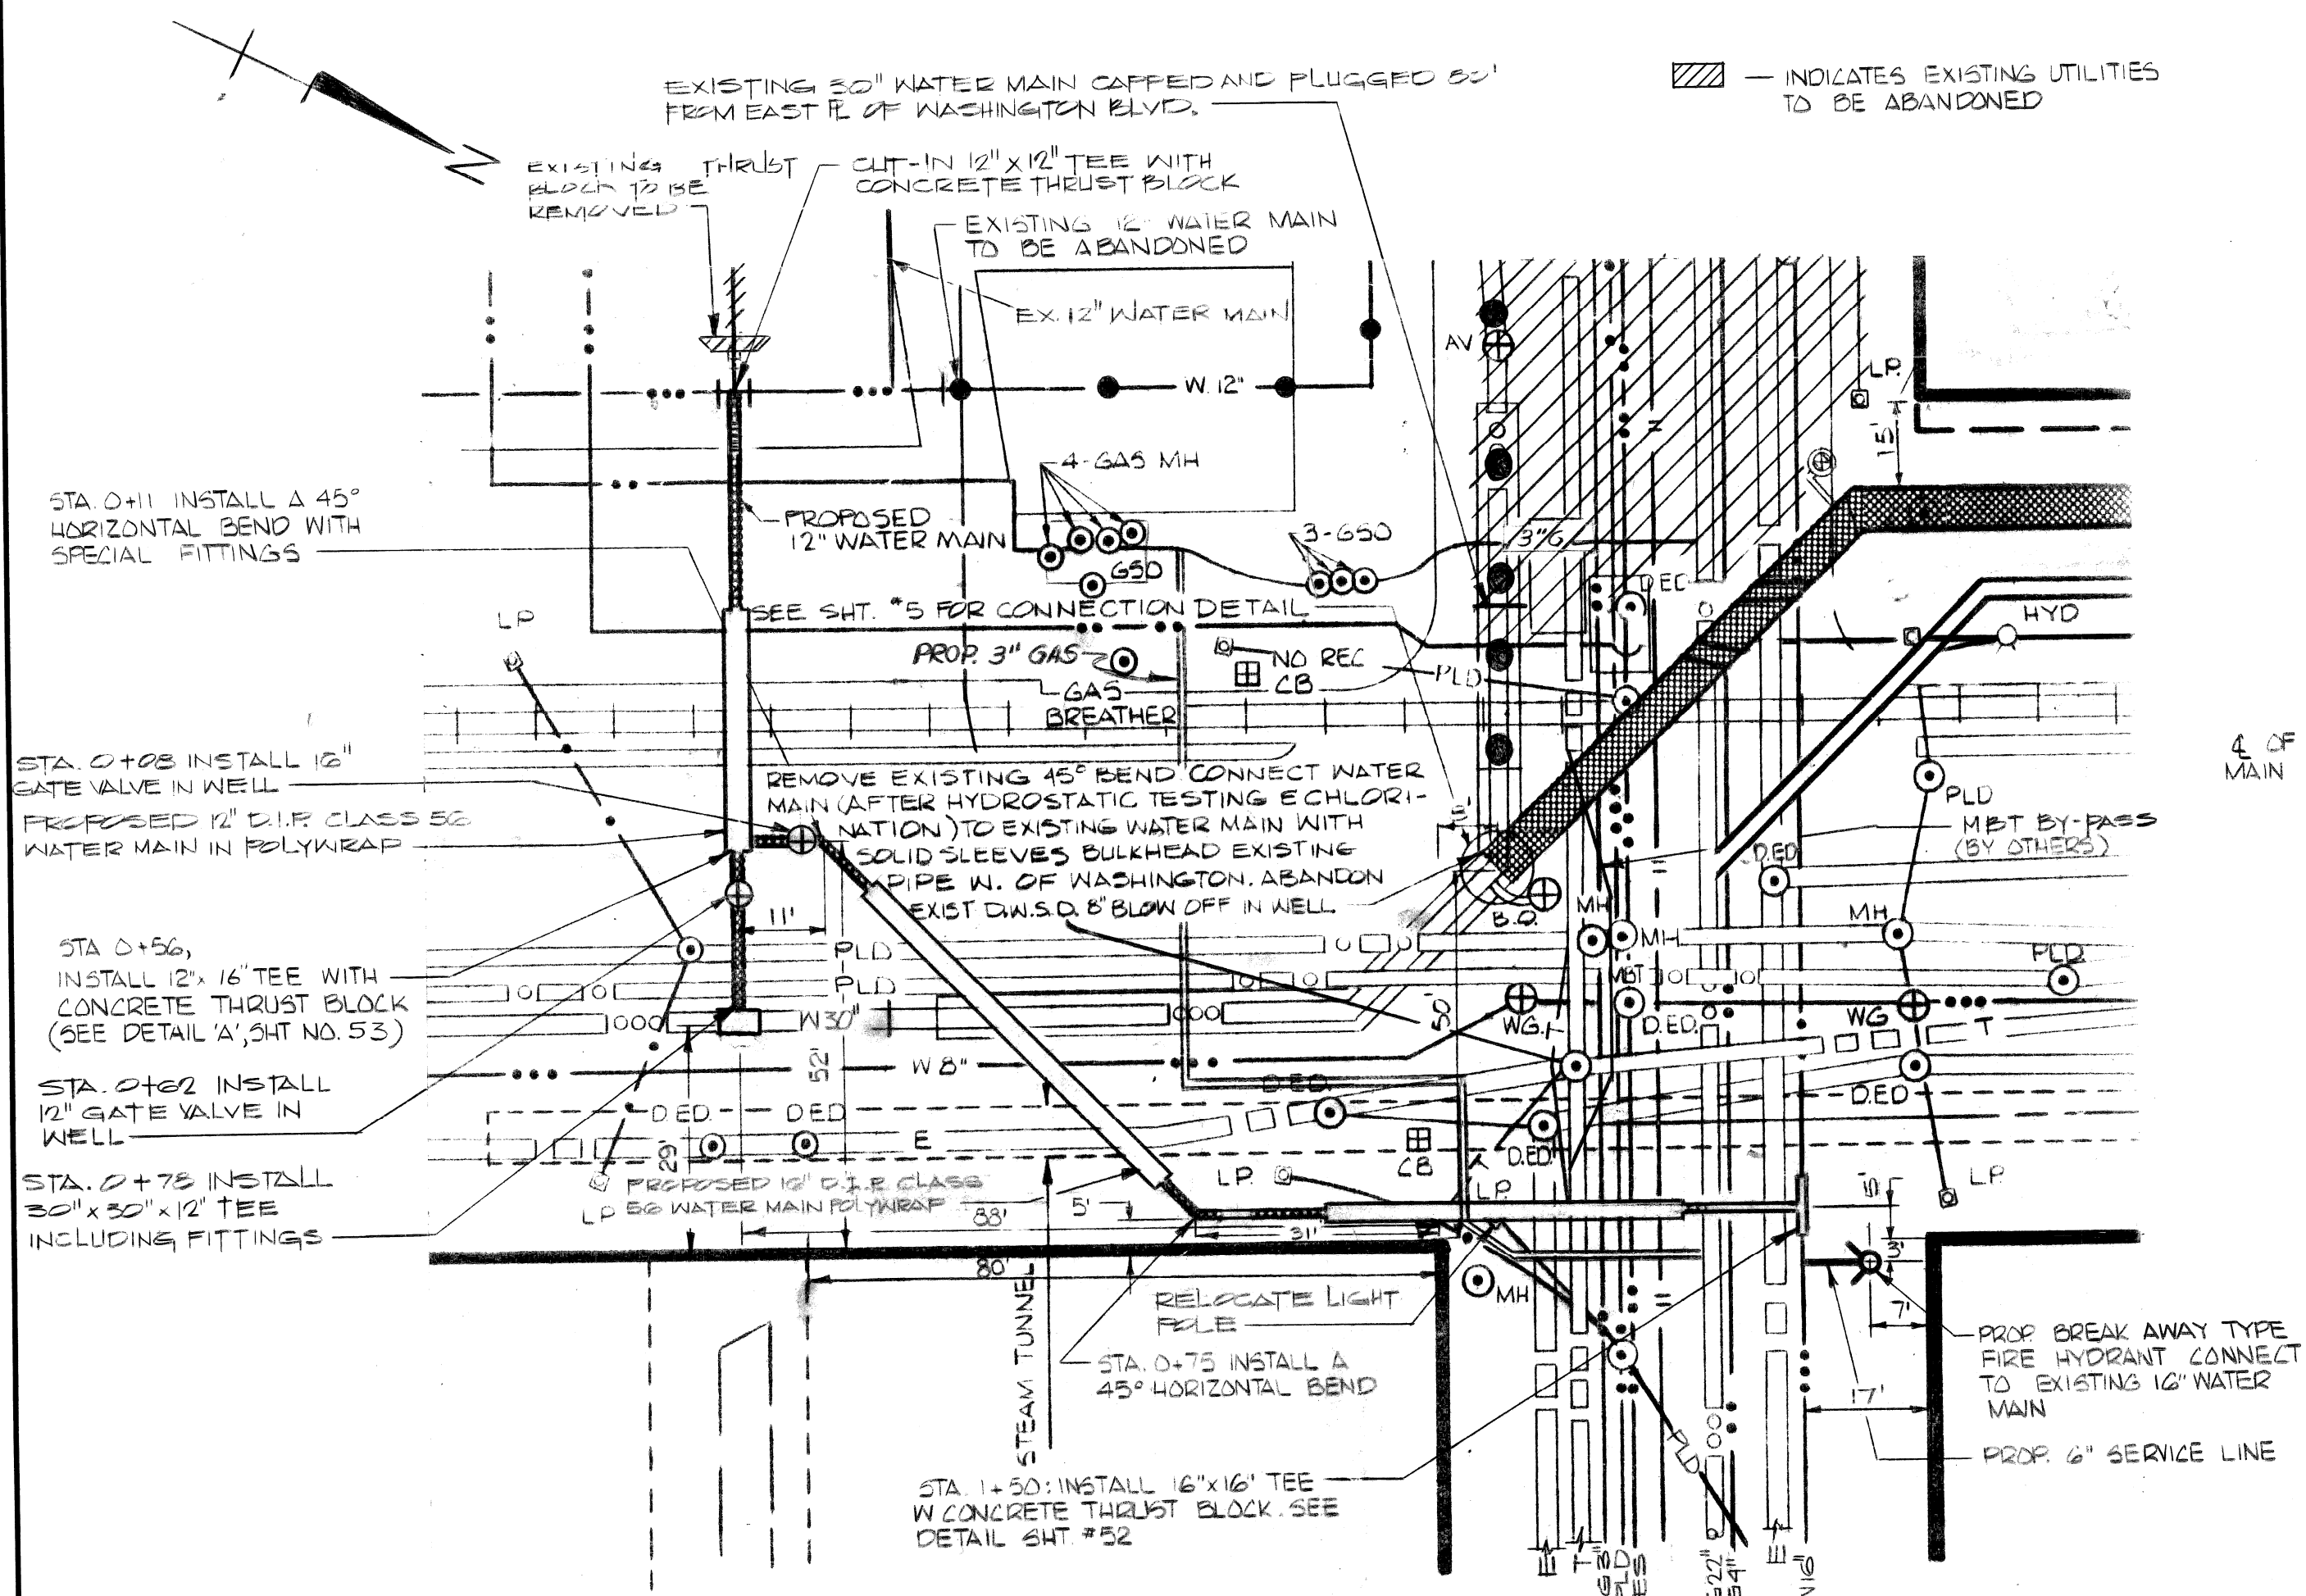 EXISTING 30" WATER MAIN CAPPED AND PLUGGED 80'
FROM EAST PL OF WASHINGTON BLVD.
— INDICATES EXISTING UTILITIES
TO BE ABANDONED
EXISTING THRUST
BLOCK TO BE
REMOVED
CUT-IN 12" X 12" TEE WITH
CONCRETE THRUST BLOCK
EXISTING 12" WATER MAIN
TO BE ABANDONED
EX. 12" WATER MAIN
AV
LP.
W. 12"
15'
4-GAS MH
STA. 0+11 INSTALL A 45°
HORIZONTAL BEND WITH
SPECIAL FITTINGS
PROPOSED
12" WATER MAIN
3-GSO
3"G
GSO
DED
SEE SHT. #5 FOR CONNECTION DETAIL
LP
HYD
PROP. 3" GAS
NO REC
CB
PLD
GAS
BREATHER
STA. 0+08 INSTALL 16"
GATE VALVE IN WELL
PROPOSED 12" D.I.P. CLASS 56
WATER MAIN IN POLYWRAP
REMOVE EXISTING 45° BEND. CONNECT WATER
MAIN (AFTER HYDROSTATIC TESTING & CHLORI-
NATION) TO EXISTING WATER MAIN WITH
SOLID SLEEVES BULKHEAD EXISTING
PIPE W. OF WASHINGTON. ABANDON
EXIST D.W.S.D. 8" BLOW OFF IN WELL
℄ OF
MAIN
PLD
MBT BY-PASS
(BY OTHERS)
D.ED.
B.O.
MH
MH
MH
11'
PLD
PLD
PLD
MBT
STA 0+56,
INSTALL 12" x 16" TEE WITH
CONCRETE THRUST BLOCK
(SEE DETAIL 'A', SHT NO. 53)
W 30"
50'
WG.
D.ED.
WG
T
52'
W 8"
STA. 0+62 INSTALL
12" GATE VALVE IN
WELL
D.ED.
D.ED.
DED
D.ED
E
29'
CB
D.ED.
STA. 0+78 INSTALL
30" x 30" x 12" TEE
INCLUDING FITTINGS
PROPOSED 16" D.I.P. CLASS
56 WATER MAIN POLYWRAP
LP
88'
5'
LP.
LP.
LP.
5'
31'
3'
80'
MH
7'
RELOCATE LIGHT
POLE
STEAM TUNNEL
STA. 0+75 INSTALL A
45° HORIZONTAL BEND
PROP. BREAK AWAY TYPE
FIRE HYDRANT CONNECT
TO EXISTING 16" WATER
MAIN
17'
PLD
PROP. 6" SERVICE LINE
STA. 1+50: INSTALL 16" x 16" TEE
W CONCRETE THRUST BLOCK. SEE
DETAIL SHT. #52
E
T
G3"
PLD
ES
E